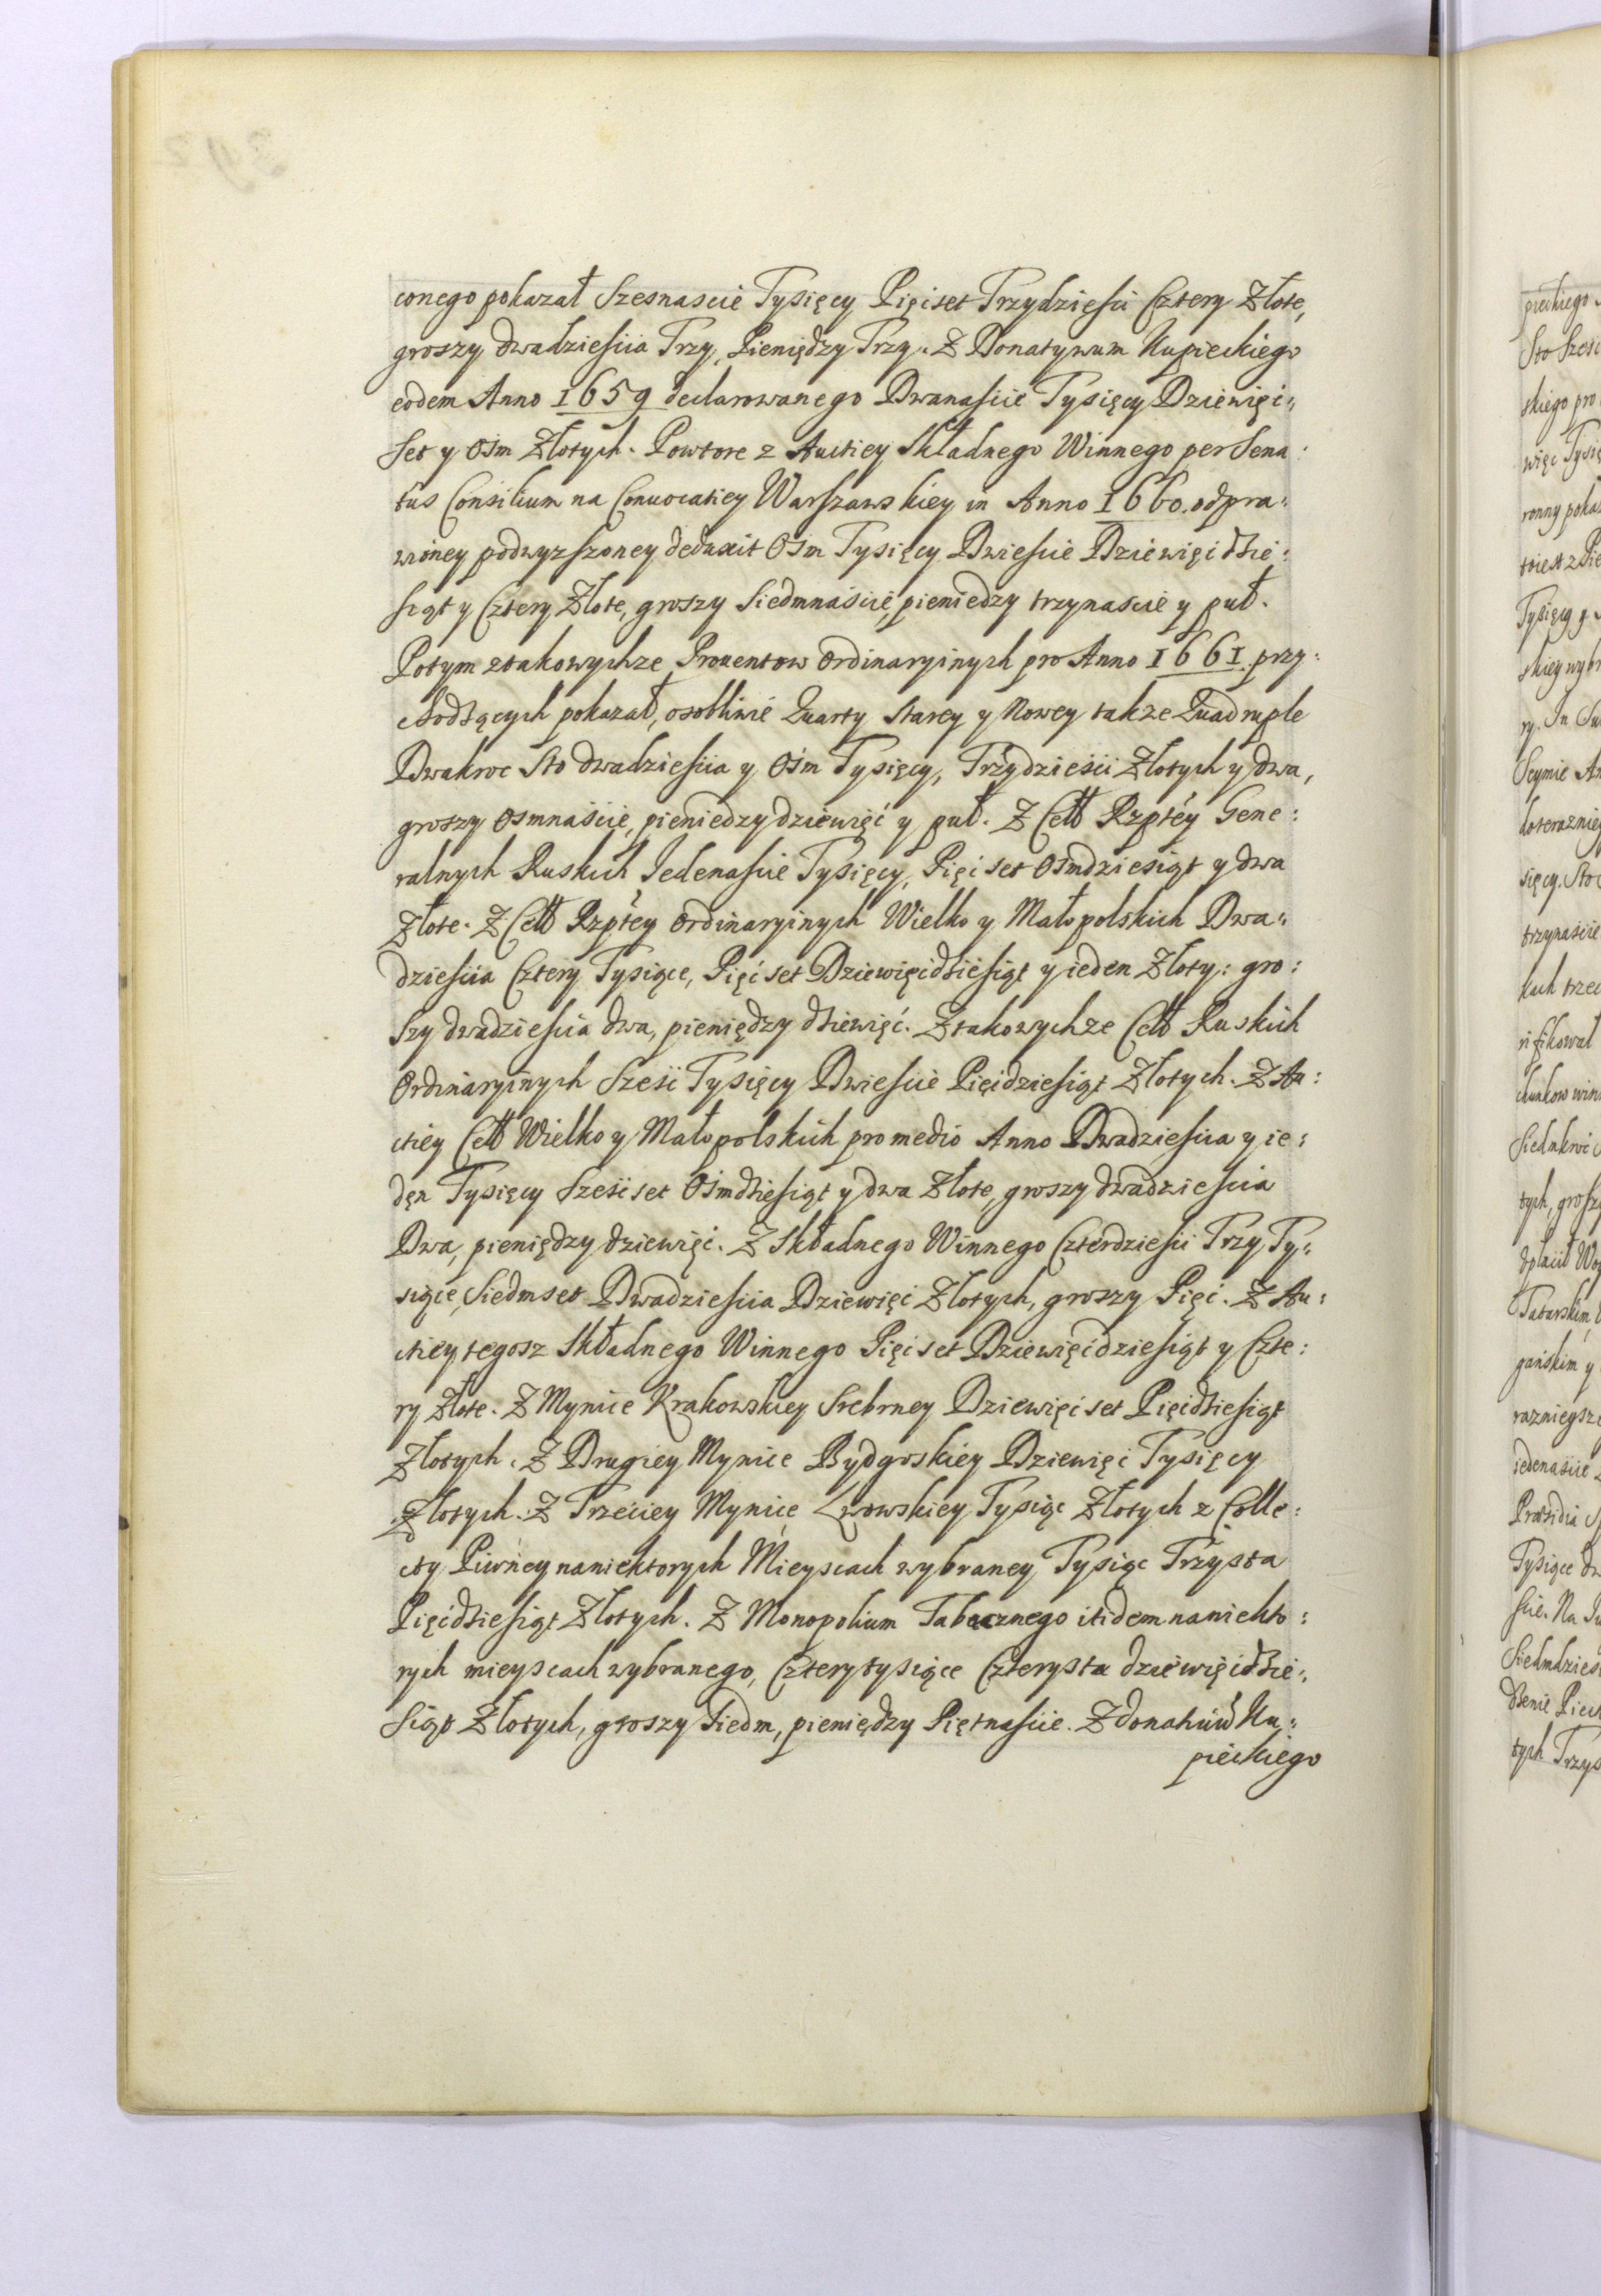 conego pokazał Szesnascie Tysięcy Pięćset Trzydzieści Cztery Złote,
groszy dwadzieścia Trzy, Pieniędzy Trzy. Z Donatywum Kupieckiego
eodem Anno 1659 declarowanego Dwanaście Tysięcy Dziewięć:
set y ośm Złotych. Powtore z Auctiey Składnego Winnego per Sena:
tus Consilium na Convocatiey Warszawskiey in Anno 1660. odpra:
wioney podwyzszoney deduxit Ośm Tysięcy Dwieście Dziewięćdzie:
siąt y Cztery Złote, groszy Siedmnaście, pieniedzy trzynascie y puł.
Potym ztakowychze Prouentow Ordinaryinych pro Anno 1661. przy:
chodzących pokazał, osobliwie Quarty Starey y Nowey takze Quadruple
Dwakroc Sto dwadzieścia y Ośm Tysięcy, Trzydzieści Złotych y dwa,
groszy Osmnaście, pieniedzy dziewięć y puł. Z Cełł Rzptey Gene:
ralnych Ruskich Jedenaście Tysięcy, Pięć set Ośmdziesiąt y dwa
Złote. Z Cełł Rzptey Ordinaryinych Wielko y Małopolskich Dwa:
dzieścia Cztery Tysiące, Pięć set Dziewięćdziesiąt y ieden Złoty: gro:
szy dwadzieścia dwa, pieniędzy dziewięć. Ztakowychze Cełł Ruskich
Ordinaryinych Sześć Tysięcy Dwieście Pięćdziesiąt Złotych. Z Au:
ctiey Cełł Wielko y Małopolskich pro medio Anno Dwadzieścia y ie:
dęn Tysięcy Sześćset Ośmdziesiąt y dwa Złote, groszy dwadzieścia
Dwa, pieniędzy dziewięć. Z Składnego Winnego Czterdzieści Trzy Ty:
siące, Siedmset Dwadzieścia Dziewięć Złotych, groszy Pięć. Z Au:
ctiey tegosz Składnego Winnego Pięć set Dziewięćdziesiąt y Czte:
ry Złote. Z Mynice Krakowskiey Srebrney Dziewięć set Pięćdziesiąt
Złotych. Z Drugiey Mynice Bydgoskiey Dziewięć Tysięcy
Złotych. Z Trzeciey Mynice Lwowskiey Tysiąc Złotych z Colle:
cty Piwney na niektorych Mieyscach wybraney Tysiąc Trzysta
Pięćdziesiąt Złotych. Z Monopolium Tabacznego itidem na niekto:
rych mieyscach wybranego, Cztery tysiące Czterysta dziewięćdzie:
siąt Złotych, groszy Siedm, pieniędzy Piętnaście. Z donatiuw Ku:
pieckiego